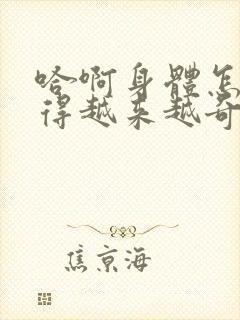 哈啊身體怎
得越来越奇
焦京海